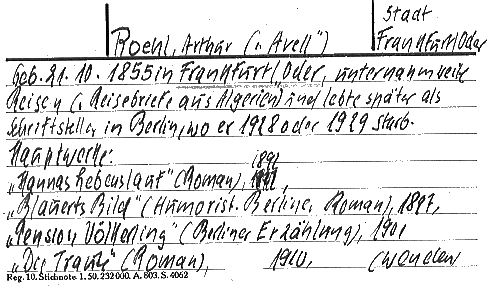 Stadt
Roehl, Arthur („Avell") Frankfurt/Oder
Geb. 21. 10. 1855 in Frankfurt/Oder, unternahm weite
Reisen („Reisebriefe aus Algerien) und lebte später als
Schriftsteller in Berlin, wo er 1928 oder 1929 starb.
Hauptwerke:
1892
„Hannas Lebenslauf" (Roman),
„Blauerts Bild" (Humorist. Berliner Roman), 1897,
„Pension Völkerling" (Berliner Erzählung), 1901
(Roman), 1910. (wenden
Reg. 10. Stichnote 1. 50. 232 000. A. 803. S. 4062